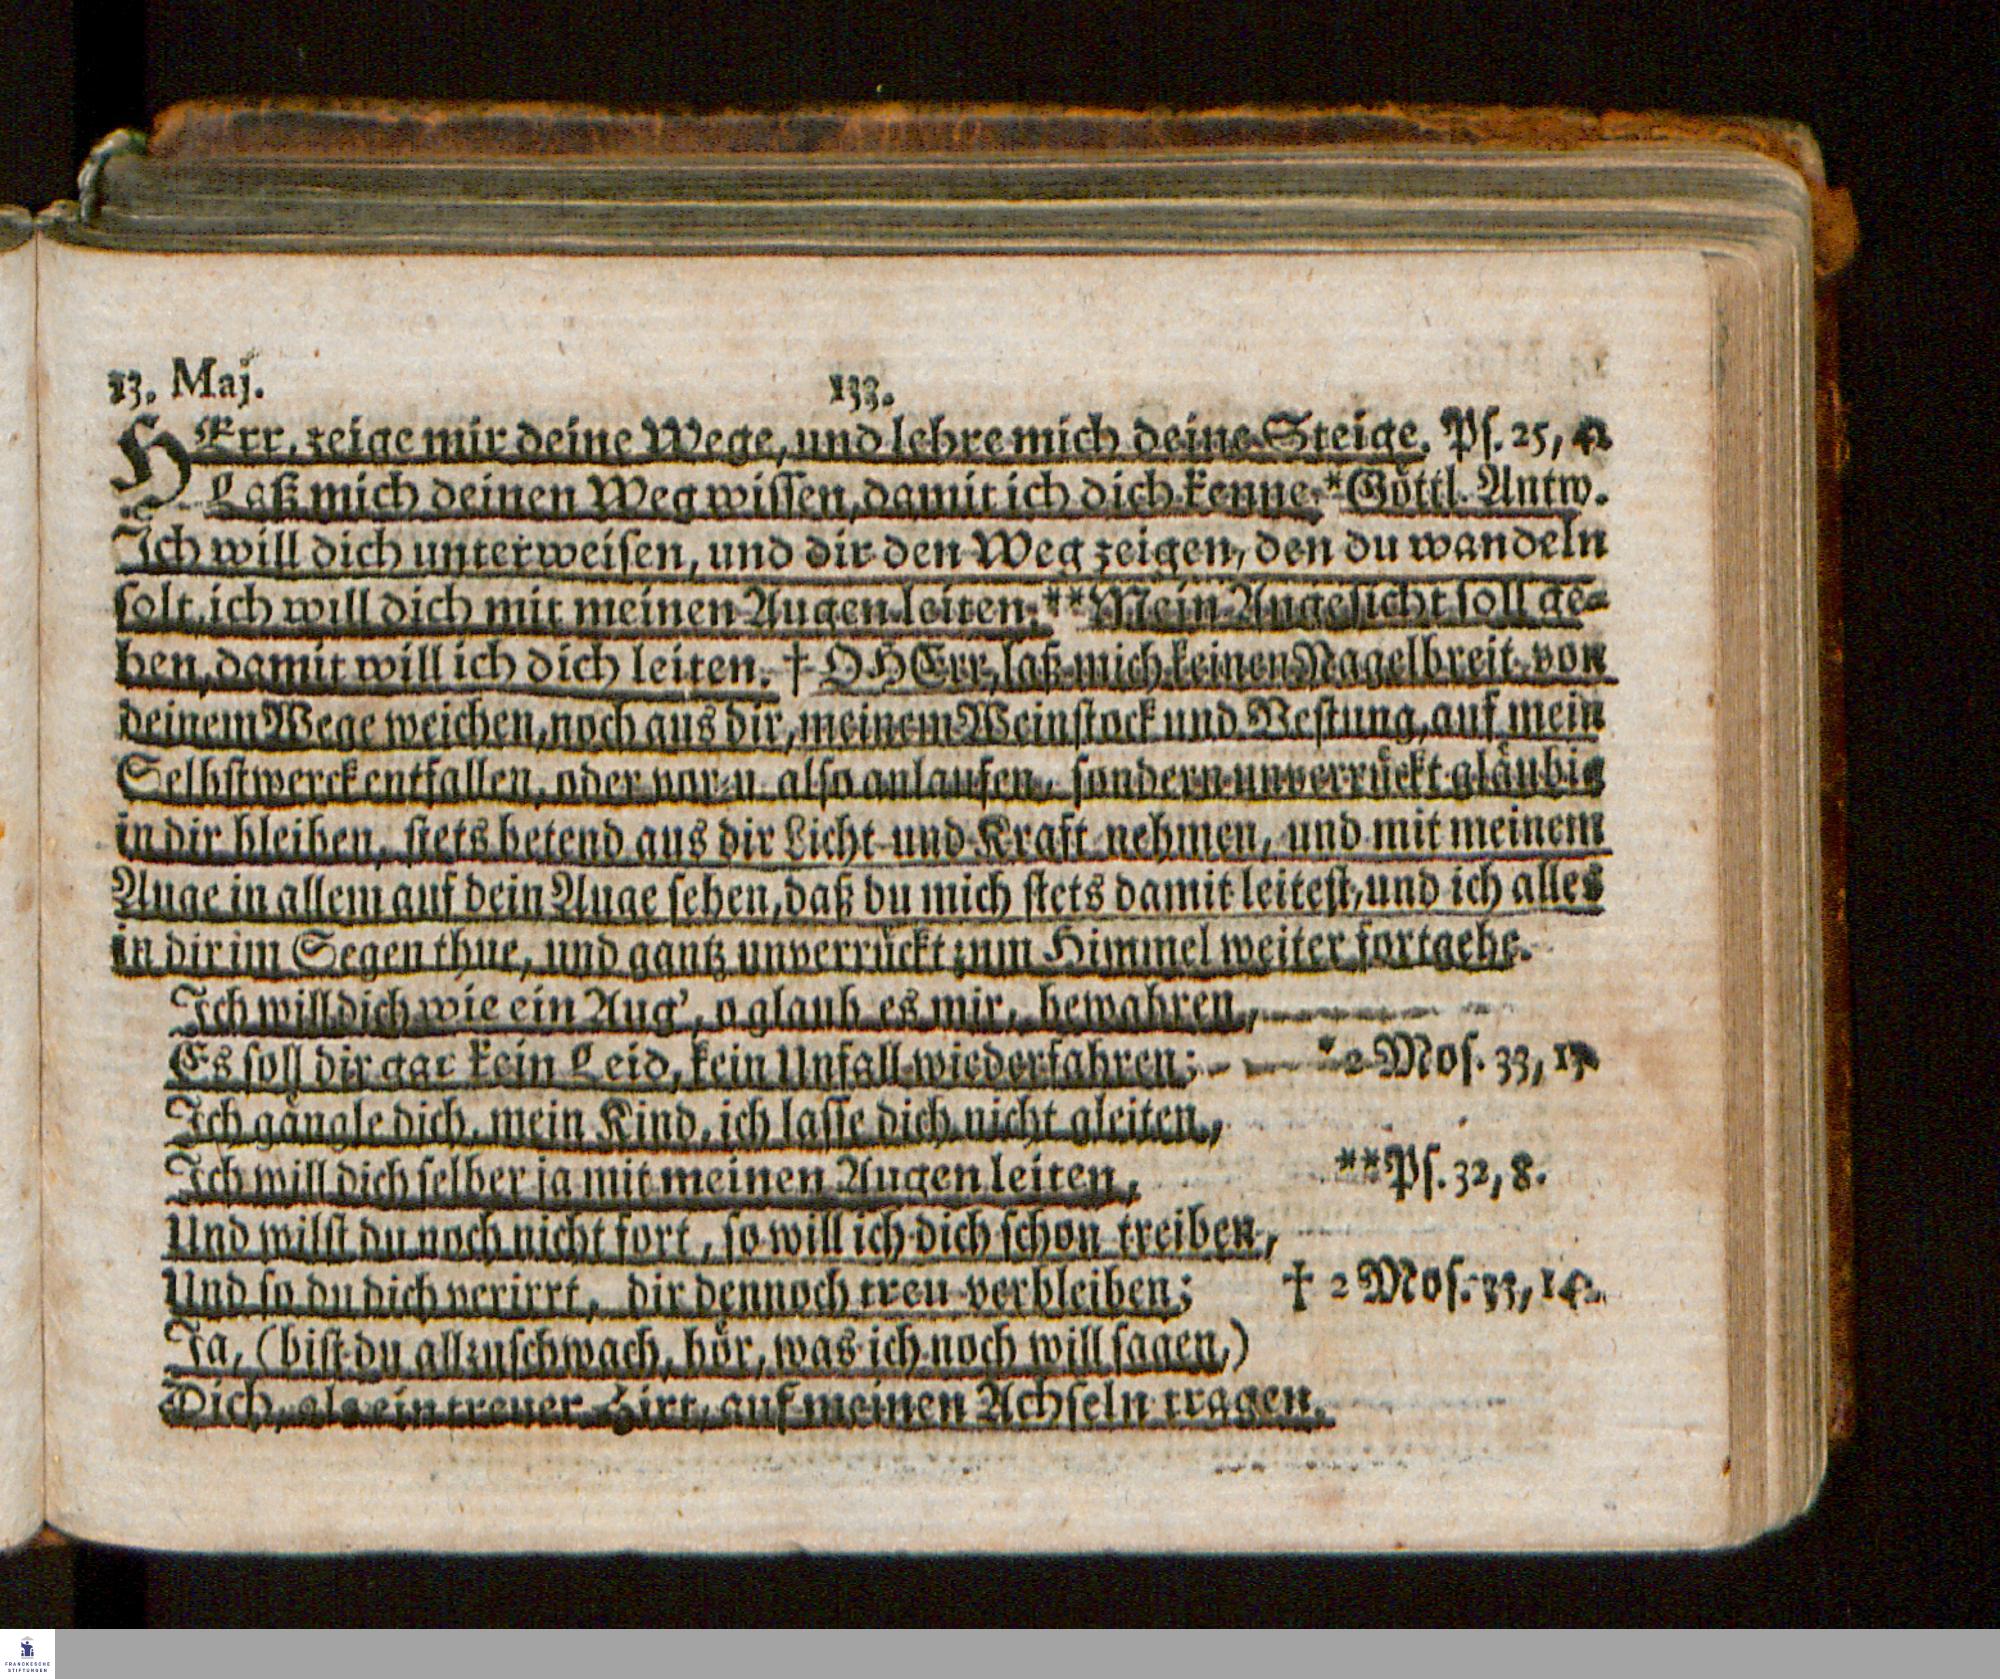 13. Maj. 133.
HErr, zeige mir deine Wege, und lehre mich deine Steige. Ps. 25, 4.
Laß mich deinen Weg wissen, damit ich dich kenne. *Göttl. Antw.
Ich will dich unterweisen, und dir den Weg zeigen, den du wandeln
solt, ich will dich mit meinen Augen leiten. **Mein Angesicht soll ge-
hen, damit will ich dich leiten. † O HErr, laß mich keinen Nagelbreit von
deinem Wege weichen, noch aus dir, meinem Weinstock und Vestung, auf mein
Selbstwerck entfallen, oder vor- u. also anlaufen, sondern unverrückt gläubig
in dir bleiben, stets betend aus dir Licht und Kraft nehmen, und mit meinem
Auge in allem auf dein Auge sehen, daß du mich stets damit leitest, und ich alles
in dir im Segen thue, und gantz unverrückt zum Himmel weiter fortgehe.
Ich will dich wie ein Aug', o glaub es mir, bewahren,
Es soll dir gar kein Leid, kein Unfall wiederfahren; *2 Mos. 33, 13.
Ich gängle dich, mein Kind, ich lasse dich nicht gleiten,
Ich will dich selber ja mit meinen Augen leiten, **Ps. 32, 8.
Und wilst du noch nicht fort, so will ich dich schon treiben,
Und so du dich verirrt, dir dennoch treu verbleiben; † 2 Mos. 33, 14.
Ja, (bist du allzuschwach, hör, was ich noch will sagen,)
Dich, als ein treuer Hirt, auf meinen Achseln tragen.
FRANCKESCHE
STIFTUNGEN